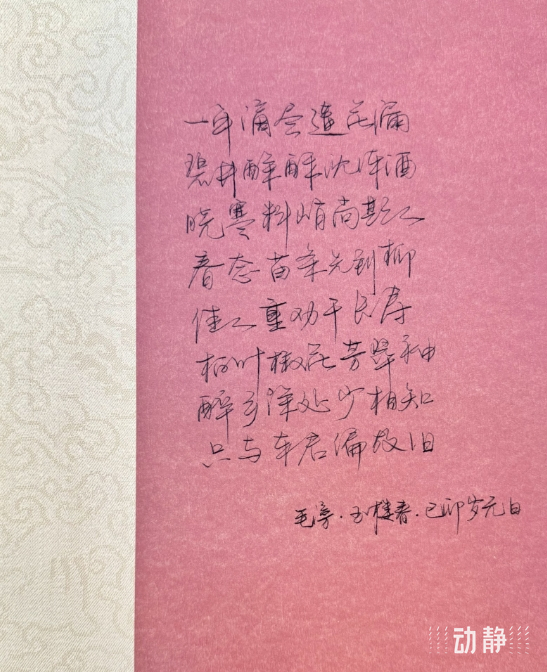 一年滴尽莲花漏
碧井酴酥沈冻酒
晓寒料峭尚欺人
春态苗条先到柳
佳人重劝千长寿
柏叶椒花芬翠袖
醉乡深处少相知
只与东君偏故旧
毛滂·玉楼春·己卯岁元日
动静